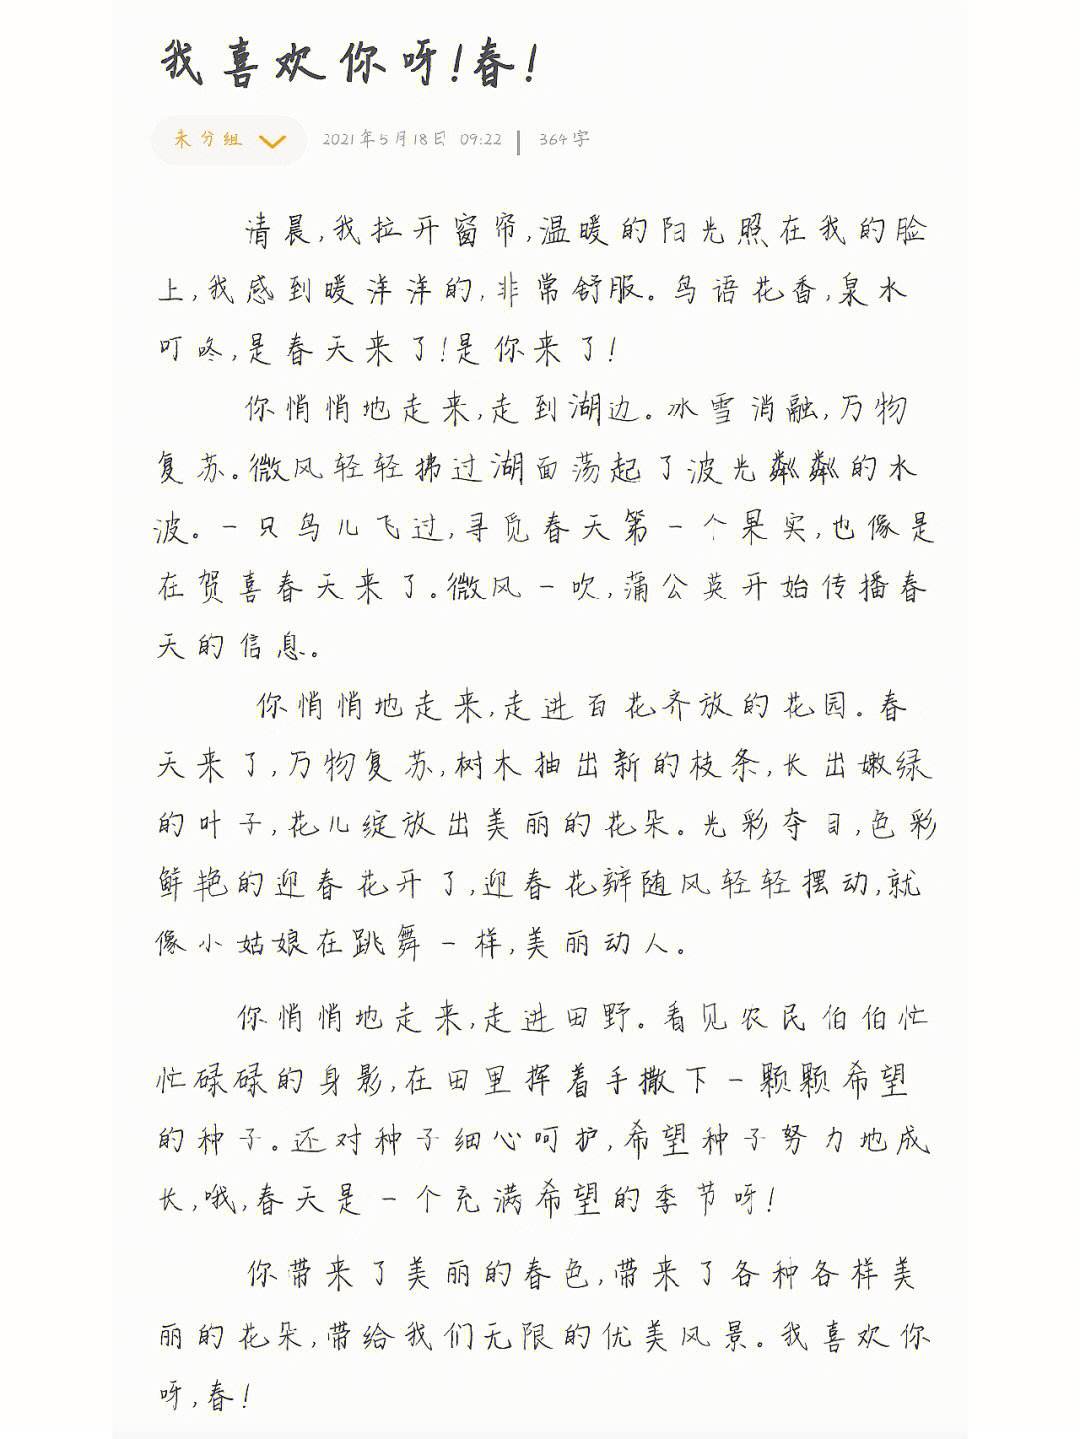 我喜欢你呀!春!
未分组 2021年5月18日 09:22 | 364字
清晨,我拉开窗帘,温暖的阳光照在我的脸
上,我感到暖洋洋的,非常舒服。鸟语花香,泉水
叮咚,是春天来了!是你来了!
你悄悄地走来,走到湖边。冰雪消融,万物
复苏。微风轻轻拂过湖面荡起了波光粼粼的水
波。一只鸟儿飞过,寻觅春天第一个果实,也像是
在贺喜春天来了。微风一吹,蒲公英开始传播春
天的信息。
你悄悄地走来,走进百花齐放的花园。春
天来了,万物复苏,树木抽出新的枝条,长出嫩绿
的叶子,花儿绽放出美丽的花朵。光彩夺目,色彩
鲜艳的迎春花开了,迎春花辦随风轻轻摆动,就
像小姑娘在跳舞一样,美丽动人。
你悄悄地走来,走进田野。看见农民伯伯忙
忙碌碌的身影,在田里挥着手撒下一颗颗希望
的种子。还对种子细心呵护,希望种子努力地成
长,哦,春天是一个充满希望的季节呀!
你带来了美丽的春色,带来了各种各样美
丽的花朵,带给我们无限的优美风景。我喜欢你
呀,春!